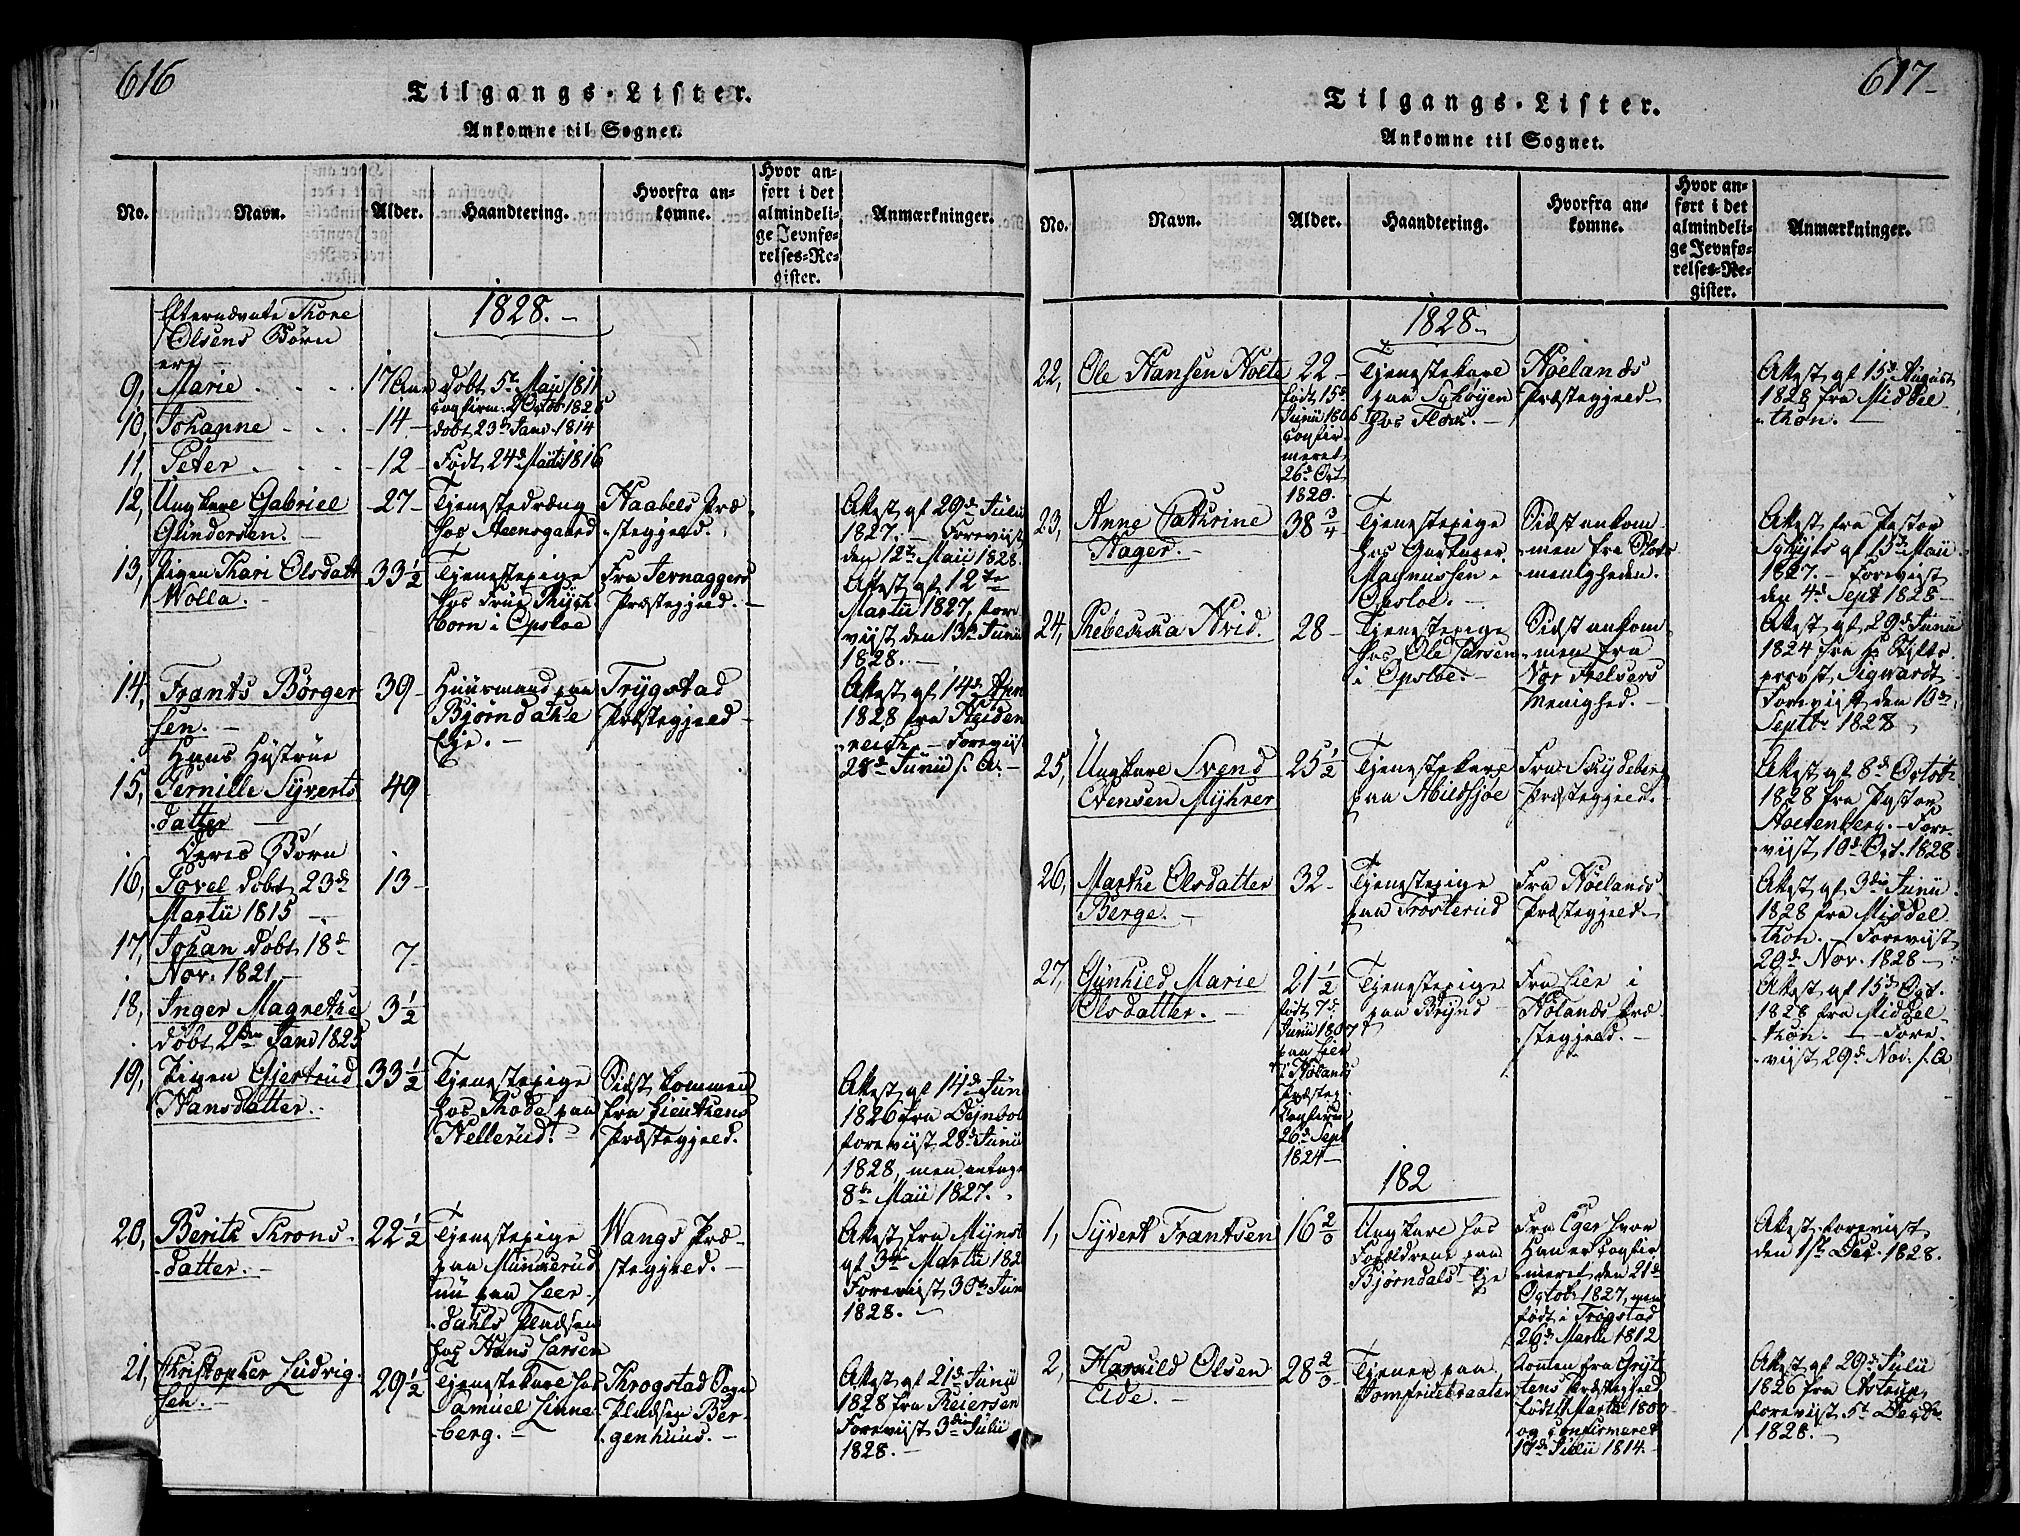 616
Tilgangs-Lister.
Ankomne til Sognet.
No.
Navn.
Alder.
Haandtering.
Hvorfra an-
komne.
Hvor an-
ført i det
almindeli-
ge Jevnfø-
relses-Re-
gister.
Anmærkninger.
1828.
Efternævnte Thore
Olsens Børn
ere
9, Marie 17 Aar døbt 5te Maii 1811
confirm. Octob. 1826
10, Johanne 14 døbt 23de Janr. 1814
11, Peter 12 Født 24de Martii 1816
12, Ungkarl Gabriel
Gundersen.
27
Tjenestedræng
hos Steensgaard
Haabøls Præ-
stegjeld.
Attest af 29de Julii
1827. Foreviist
den 12te Maii 1828.
13, Pigen Kari Olsdatt
Wolla.
33 1/2
Tjenestepige
hos Frue
born i Opsloe
Fra Jernaggers
Præstegjeld.
Attest af 12te
Martii 1827, fore-
viist den 13de Junii
1828.
14, Frants Børger
sen.
39
Huusmand paa
Bjørndahls
Eje.
Trygstad
Præstegjeld
Attest af 14de
1828 fra Heiden-
reich. Foreviist
28de Junii s. A.
Hans Hustrue
15, Pernille Syverts
datter
49
Deres Børn
16, Povel døbt 23de
Martii 1815
13
17, Johan døbt 18de
Nov. 1821
7
18, Inger Magrethe
døbt 2den Janr 1825
3 1/2
19, Pigen Gjertrud
Hansdatter.
33 1/2
Tjenestepige
hos Thode paa
Hellerud.
Sidst kommen
fra
Præstegjeld.
Attest af 14de Jun
1826 fra
foreviist 28de Junii
1828, men antagt
8de Maii 1827.
20, Berith Throns-
datter.
22 1/2
Tjenestepige
paa Munkerud
nu paa Leer-
dahls Pladsen
hos Hans Larsen
Wangs Præ-
stegjeld.
Attest fra
af 3die Martii 182
Foreviist 30te Jun
1828.
21, Christopher Ludvig-
sen.
29 1/2
Tjenestekarl hos
Samuel Linne-
berg.
Throgstad Sogn
Pladsen Ber-
genhuus.
Attest af 21de Junii
1828 fra Reiersen
Foreviist 3die Julii
1828.
617
Tilgangs-Lister.
Ankomne til Sognet.
No.
Navn.
Alder.
Haandtering.
Hvorfra an-
komne.
Hvor an-
ført i det
almindeli-
ge Jevnfø-
relses-Re-
gister.
Anmærkninger.
1828.
22, Ole Hansen Holte
22
født 15de
Junii 1806
confir-
meret
26de Oct
1820.
Tjenestekarl
paa Schøyen
hos Flor.
Høelands
Præstegjeld
Attest af 15de August
1828 fra Middel-
thon.
23, Anne Cathrine
Hager.
38 3/4
Tjenestepige
hos Gartner
Magnussen i
Opsloe.
Sidst ankom-
men fra Slots-
menigheden.
Attest fra Pastor
af 15de Maii
1827. Foreviist
den 4de Sept 1828
24, Rebekka Hvid.
28
Tjenestepige
hos Ole Larsen
i Opsloe.
Sidst ankom-
men fra
Vor Frelsers
Menighed.
Attest af 29de Junii
1824 fra Stifts-
provst Sigwardt
Foreviist den 10de
Septbr 1828
25, Ungkarl Svend
Evensen Myhrer
25 1/2
Tjenestekarl
paa Abildsøe
Fra Skydeberg
Præstegjeld.
Attest af 8de Octob.
1828 fra Pastor
Foreviist 10de Oct. 1828
26, Marthe Olsdatter
Berge.
32
Tjenestepige
paa Trosterud
Fra Høelands
Præstegjeld
Attest af 3die Junii
1828 fra Middel-
thon. Foreviist
29de Nov. 1828
27, Gunhild Marie
Olsdatter.
21 1/2
født 7de
Junii 1807
paa Lier
i Hølands
Præsteg.
Confirm
26de Sept
1824
Tjenestepige
paa Brynd
Fra Lier i
Hølands Præ-
stegjeld.
Attest af 15de Oct.
1828 fra Middel-
thon. Fore-
viist 29de Nov. s. A
182
1, Syvert Frantsen
16 2/3
Ungkarl hos
Forældrene paa
Bjørndals Eje
Fra Eger hvor
Han er confir-
meret den 21de
Octob. 1827, men
født i Trøgstad
26de Martii 1812
Attest foreviist
den 1ste Dec. 1828.
2, Haruild Olsen
Eide.
28 2/3
Tjener paa
Komen fra Gryt-
tens Præstegjeld
født Martii 1800
og confirmeret
17de Julii 1814.
Attest af 29de Julii
1826 fra
foreviist 5te Decbr
1828.